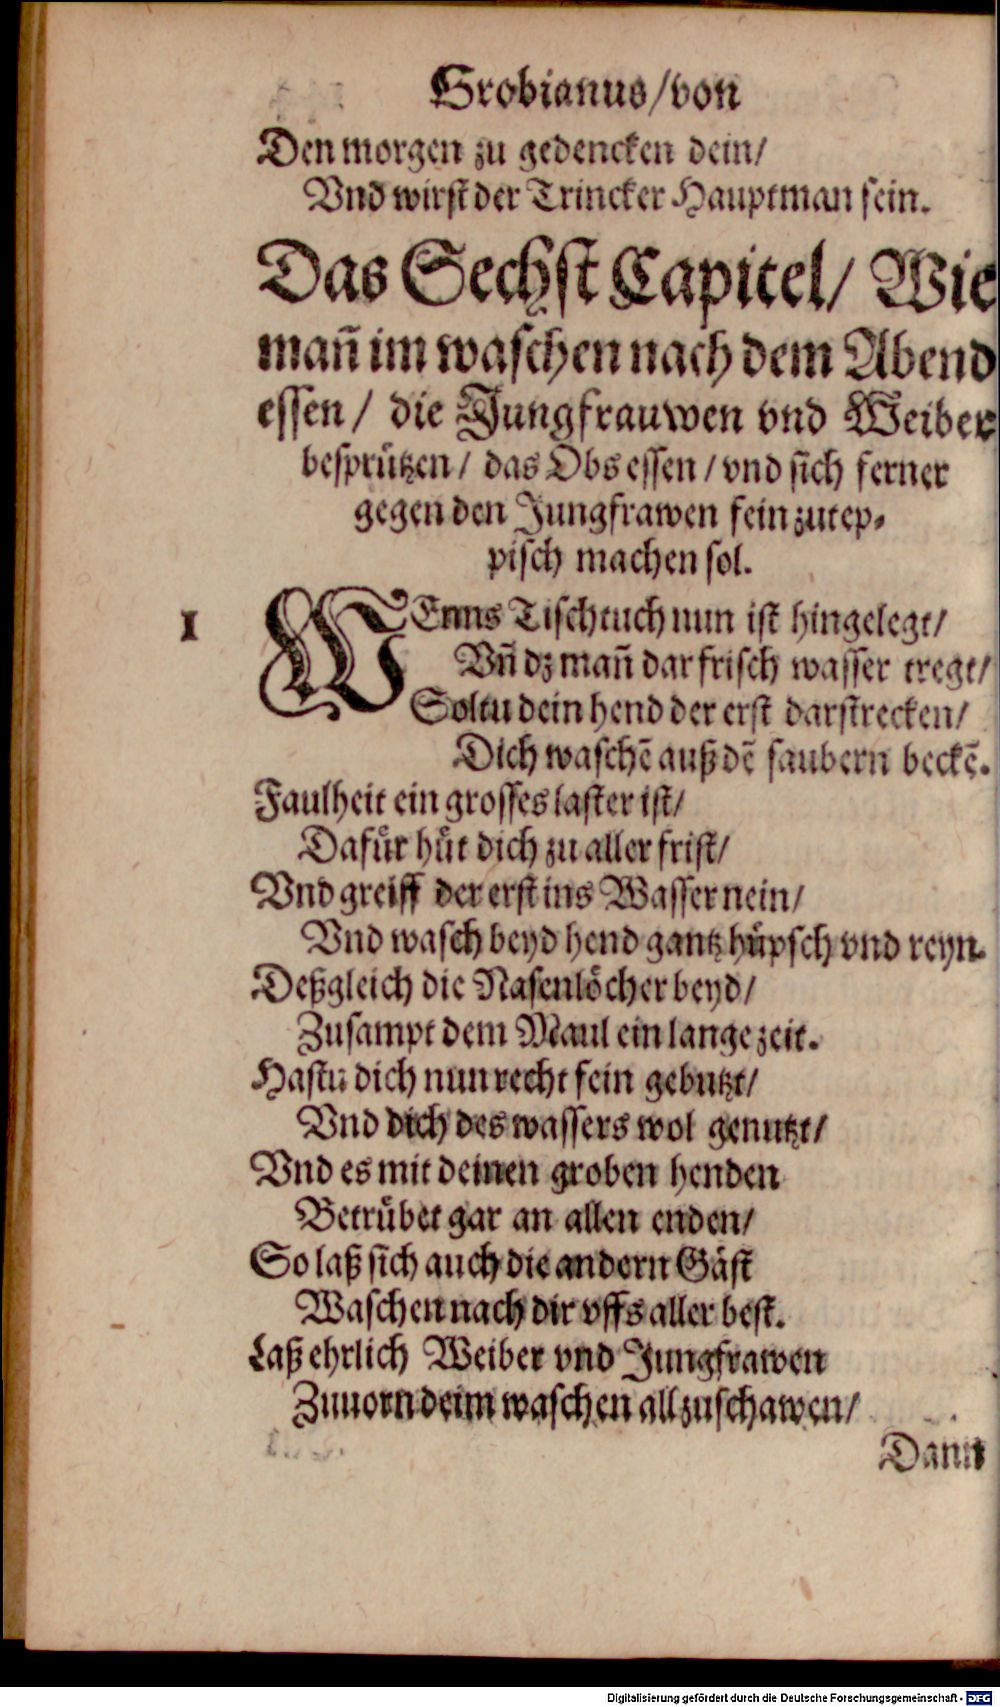 Grobianus/von
Den morgen zu gedencken dein/
Vnd wirst der Trincker Hauptman sein.
Das Sechst Capitel/ Wie
mañ im waschen nach dem Abend
essen/ die Jungfrauwen vnd Weiber
besprützen/ das Obs essen/ vnd sich ferner
gegen den Jungfrawen fein zutep⸗
pisch machen sol.
1
WEnns Tischtuch nun ist hingelegt/
Vñ dz mañ dar frisch wasser tregt/
Soltu dein hend der erst darstrecken/
Dich waschẽ auß dẽ saubern beckẽ.
Faulheit ein grosses laster ist/
Dafür hüt dich zu aller frist/
Vnd greiff der erst ins Wasser nein/
Vnd wasch beyd hend gantz hüpsch vnd reyn.
Deßgleich die Nasenlöcher beyd/
Zusampt dem Maul ein lange zeit.
Hastu dich nun recht fein gebutzt/
Vnd dich des wassers wol genutzt/
Vnd es mit deinen groben henden
Betrübet gar an allen enden/
So laß sich auch die andern Gäst
Waschen nach dir vffs aller best.
Laß ehrlich Weiber vnd Jungfrawen
Zuuorn deim waschen all zuschawen/
Dann
Digitalisierung gefördert durch die Deutsche Forschungsgemeinschaft - DFG